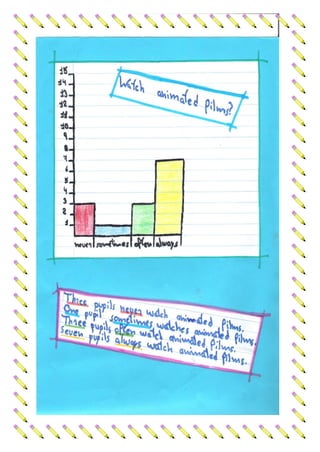 Watch animated films?
15
14
13
12
11
10
9
8
7
6
5
4
3
2
1
never sometimes often always
Three pupils never watch animated films.
One pupil sometimes watches animated films.
Three pupils often watch animated films.
Seven pupils always watch animated films.